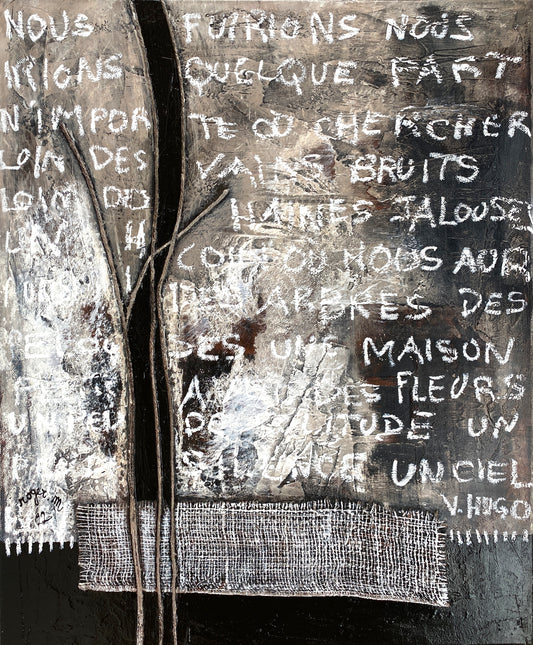 NOUS FUIRIONS NOUS
IRIONS QUELQUE PART
N'IMPORTE OU CHERCHER
LOIN DES VAINS BRUITS
LOIN DE HAINES JALOUSES
UN COIN OU NOUS AUR
DES ARBRES DES
UNE MAISON
DES FLEURS
UN PEU DE SOLITUDE UN
SILENCE UN CIEL
V. HUGO
roger M